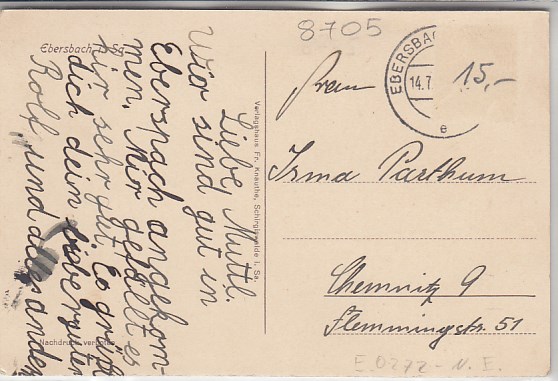 8705
Ebersbach i. Sa.
Liebe Mutti
Wier sind gut in
Eberspach angekom-
men. Mir gefällt es
hir sehr gut. Es grüßt
dich dein lieber
Rolf und alle andern
Nachdruck verboten
Verlagshaus Fr. Knauthe, Schirgiswalde i. Sa.
EBERSBA
14.7.
e
15,-
Frau
Irma Parthum
Chemnitz 9
Flemmingstr. 51
E.0272-N.E.